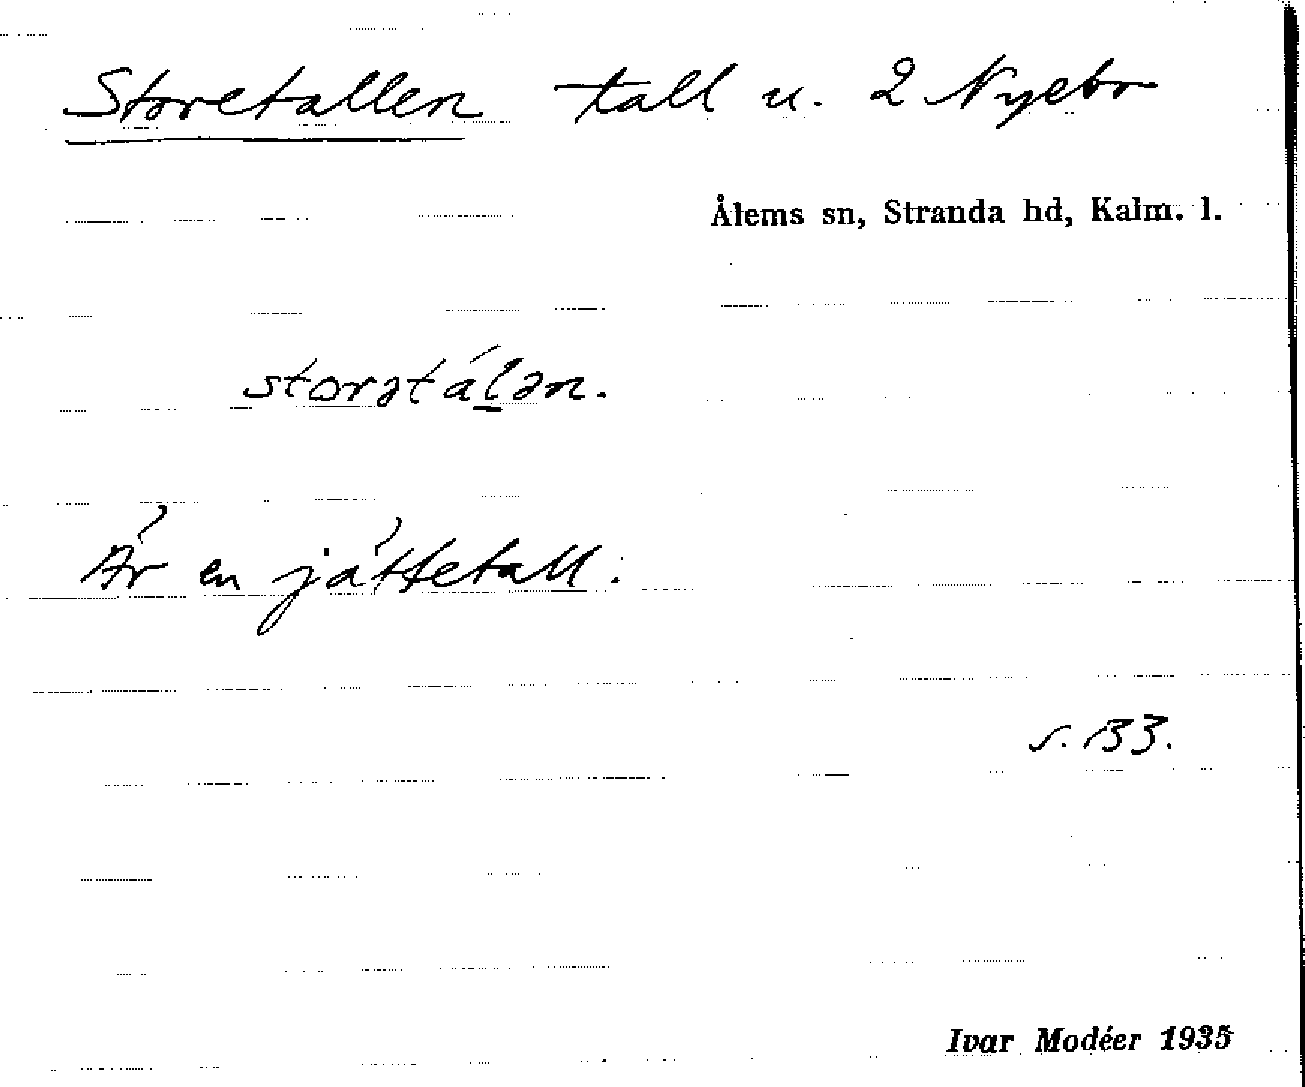 Storetallen tall u. 2 Nyebo
Ålems sn, Stranda hd, Kalm. l.
storətálən.
Är en jättetall.
s. 133.
Ivar Modéer 1935